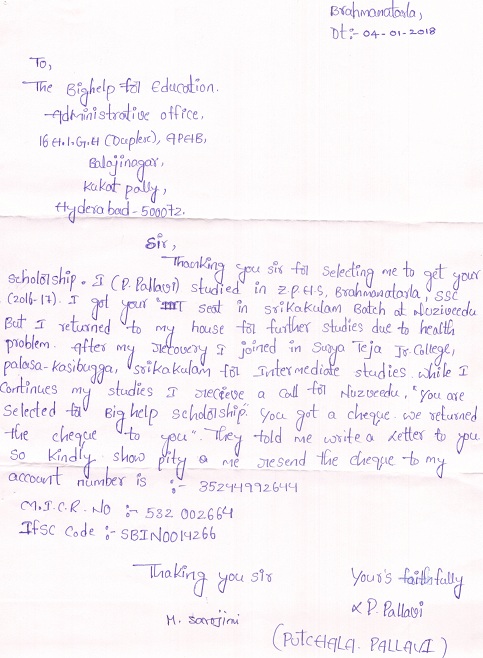 Brahmanatarla,
Dt:- 04-01-2018
To,
The Bighelp for Education.
Administrative office,
16 H.I.G.H (Duplex), APHB,
Balajinagar,
Kukat pally,
Hyderabad-500072.
Sir,
Thanking you sir for selecting me to get your
scholorship. I (P. Pallavi) studied in Z.P.H.S, Brahmanatarla, SSC
(2016-17). I got your IIIT seat in srikakulam Batch at Nuziveedu
But I returned to my house for further studies due to health
problem. After my recovery I joined in Surya Teja Jr. College,
palasa-kasibugga, srikakulam for Intermediate studies. while I
Continues my studies I recieve a call for Nuzveedu, "You are
Selected for Big help scholorship." You got a cheque. we returned
the cheque to you". They told me write a Letter to you
So kindly show pity a me resend the cheque to my
account number is :- 35244992644
M.I.C.R. NO :- 532 002664
IFSC Code :- SBIN0014266
Thaking you sir
Your's faithfully
P. Pallavi
M. Sarojini
(POTCHALA. PALLAVI)